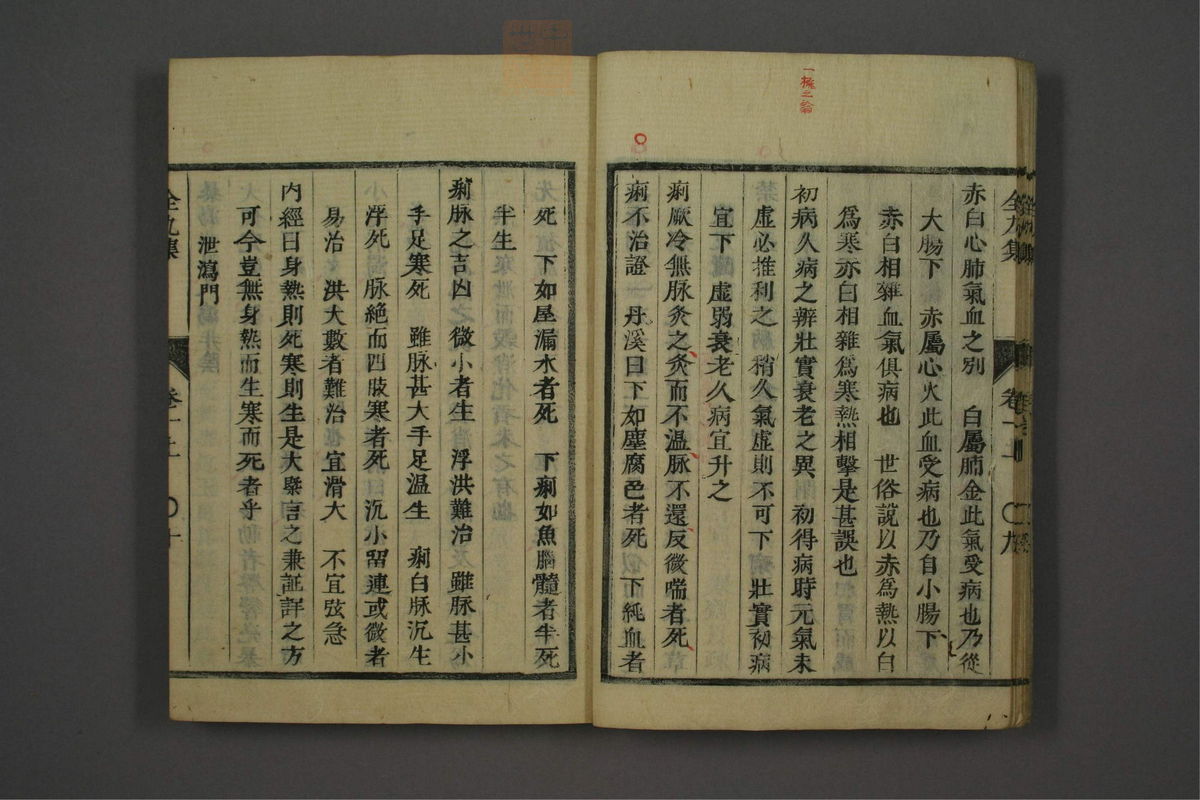 赤白心肺氣血之別　白屬肺金此氣受病也乃從
大腸下　赤屬心火此血受病也乃自小腸下
赤白相雜血氣俱病也　世俗說以赤爲熱以白
爲寒亦曰相雜爲寒熱相擊是甚誤也
初病久病之辨壯實衰老之異　初得病時元氣未
虛必推利之　稍久氣虛則不可下　壯實初病
宜下　虛弱衰老久病宜升之
痢厥冷無脉灸之灸而不温脉不還反微喘者死
痢不治證　丹溪曰下如塵腐色者死　下純血者
全九集　卷一上　〇九
死　下如屋漏水者死　下痢如魚腦髓者半死
半生
痢脉之吉凶　微小者生　浮洪難治　雖脉甚小
手足寒死　雖脉甚大手足温生　痢白脉沉生
浮死　脉絶而四肢寒者死　沉小留連或微者
易治　洪大數者難治　宜滑大　不宜弦急
内經曰身熱則死寒則生是大槩言之兼証詳之方
可今豈無身熱而生寒而死者乎
泄瀉門
全九集　卷一上　〇十
8